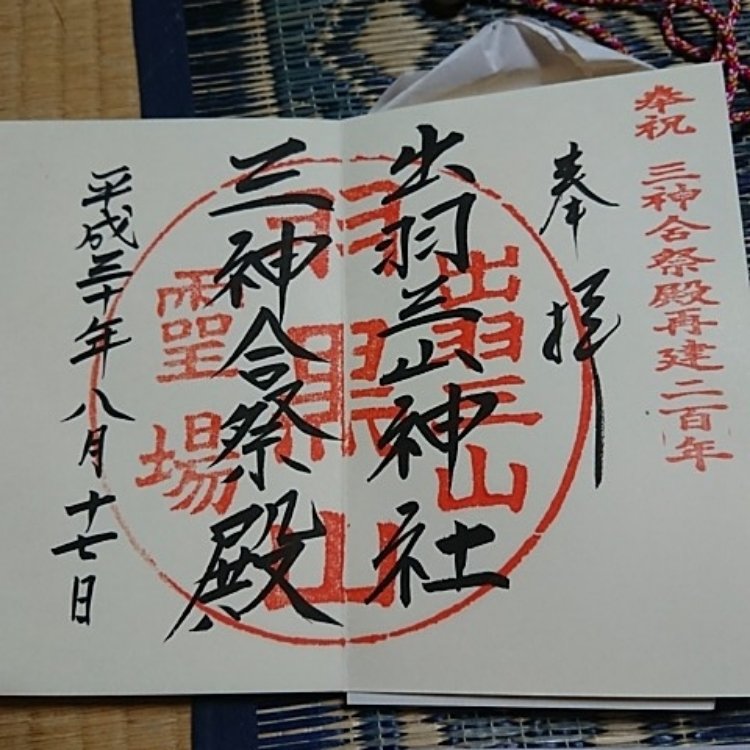 奉祝 三神合祭殿再建二百年
奉拝
出羽三山神社
三神合祭殿
平成三十年八月十七日
出羽三山
羽黒山
霊場